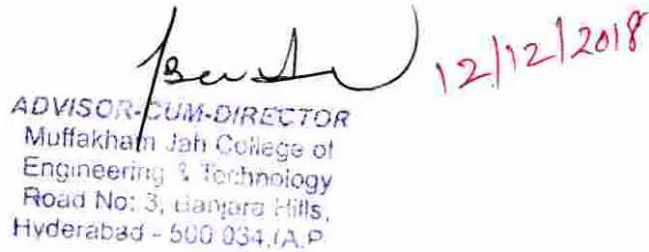 12/12/2018
ADVISOR-CUM-DIRECTOR
Muffakham Jah College of
Engineering & Technology
Road No: 3, Banjara Hills,
Hyderabad - 500 034, (A.P.